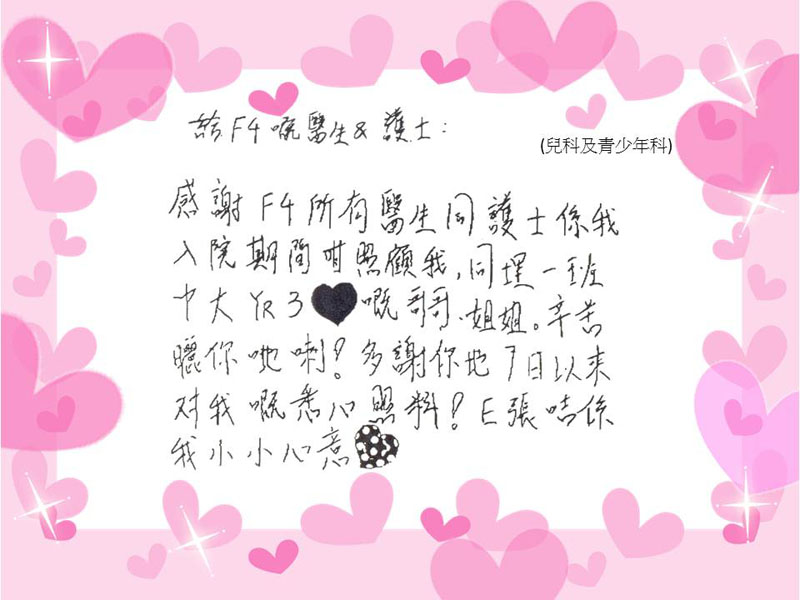 給F4嘅醫生&護士：
(兒科及青少年科)
感謝F4所有醫生同護士係我
入院期間咁照顧我,同埋一班
中大YR3嘅哥哥、姐姐。辛苦
曬你哋喇！多謝你地7日以來
对我嘅悉心照料！E張咭係
我小小心意